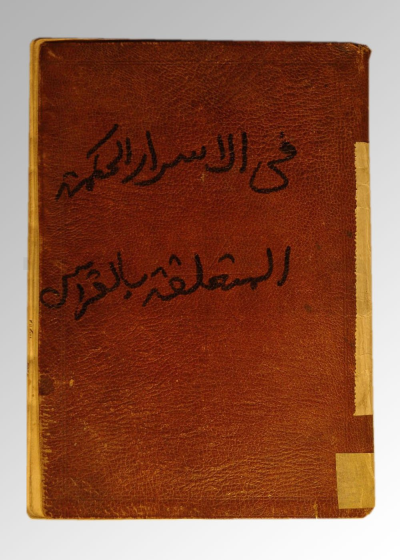 فى الاسرار الحكمية
المتعلقة بالقرآن